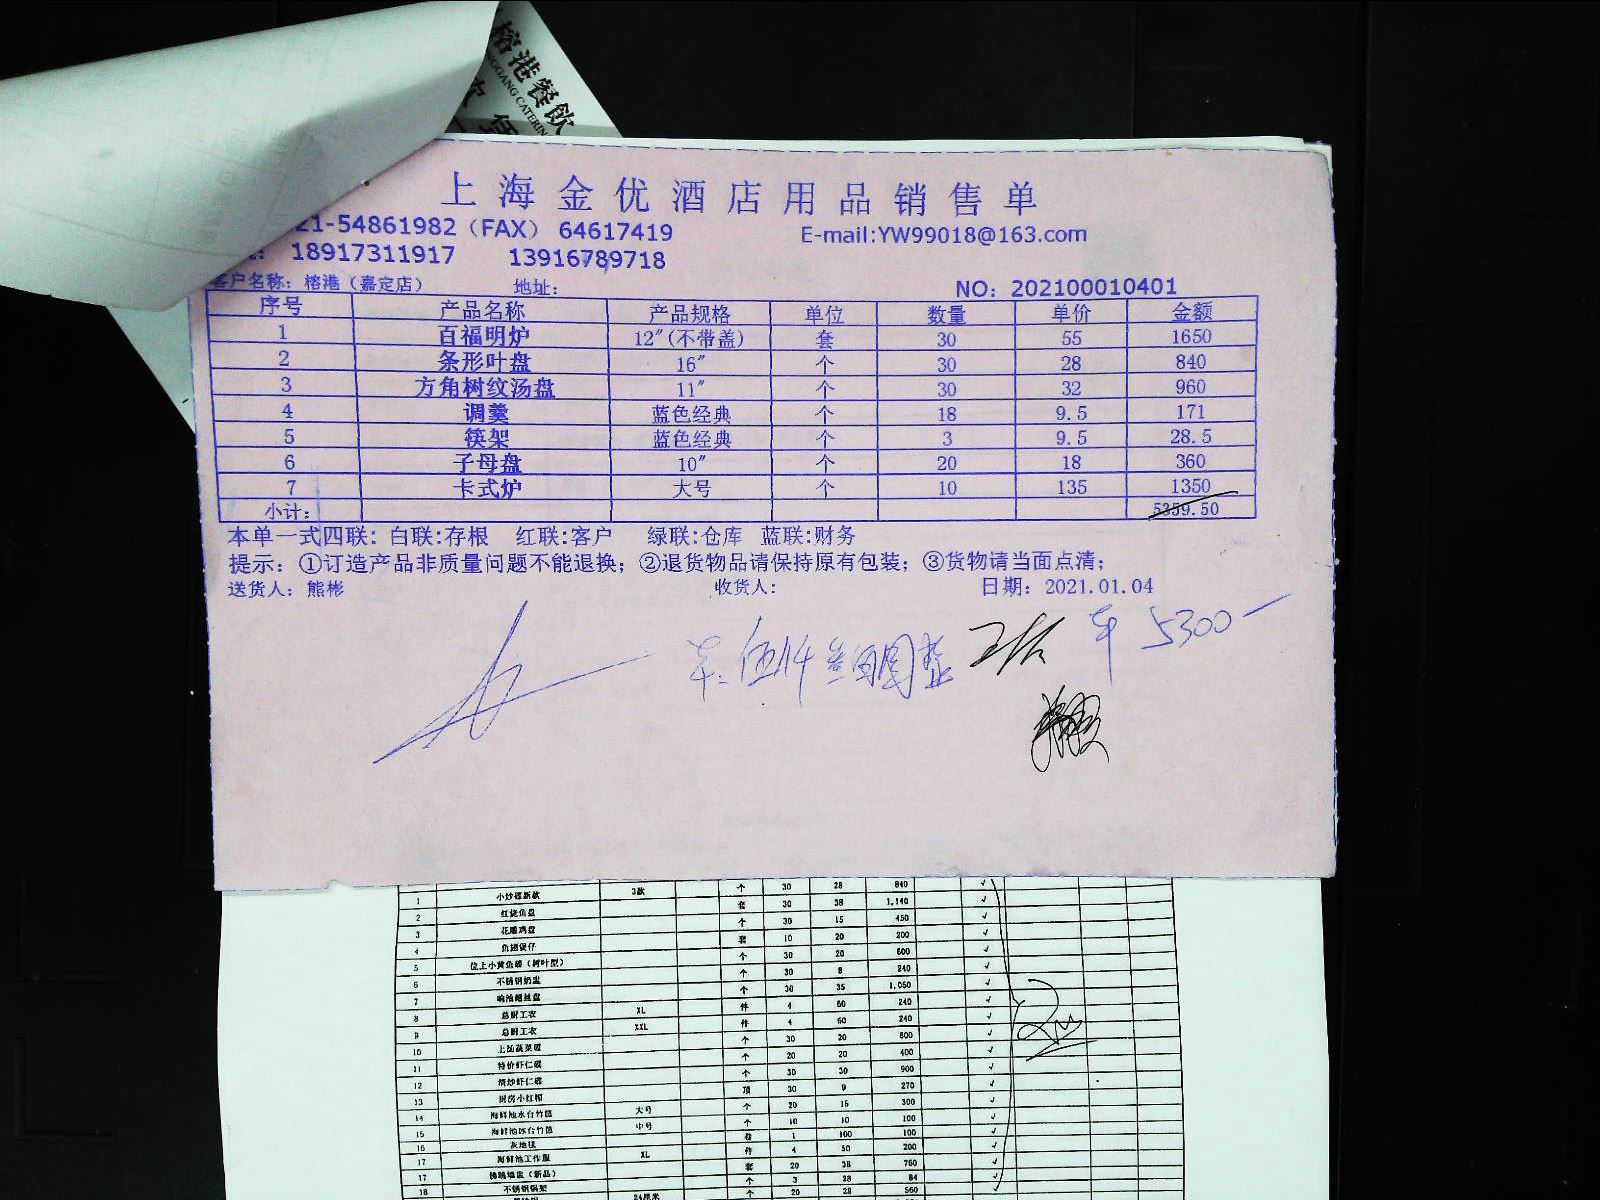 榕港餐饮
上海金优酒店用品销售单
21-54861982（FAX） 64617419 E-mail:YW99018@163.com
18917311917 13916789718
客户名称：榕港（嘉定店） 地址： NO：202100010401
序号 产品名称 产品规格 单位 数量 单价 金额
1 百福明炉 12″(不带盖) 套 30 55 1650
2 条形叶盘 16″ 个 30 28 840
3 方角树纹汤盘 11″ 个 30 32 960
4 调羹 蓝色经典 个 18 9.5 171
5 筷架 蓝色经典 个 3 9.5 28.5
6 子母盘 10″ 个 20 18 360
7 卡式炉 大号 个 10 135 1350
小计： 5359.50
本单一式四联：白联:存根 红联:客户 绿联:仓库 蓝联:财务
提示：①订造产品非质量问题不能退换；②退货物品请保持原有包装；③货物请当面点清；
送货人：熊彬 收货人： 日期：2021.01.04
伍仟叁佰圆整 5300
1 小炒碟新款 3款 个 30 28 840
2 红烧鱼盘 套 30 38 1,140
3 花雕鸡盘 个 30 15 450
4 鱼翅煲仔 套 10 20 200
5 位上小黄鱼碟（树叶型） 个 30 20 600
6 不锈钢奶盅 个 30 8 240
7 个 30 35 1,050
8 总厨工衣 XL 件 4 60 240
9 总厨工衣 XXL 件 4 60 240
10 上汤蔬菜碟 个 30 20 600
11 特价虾仁碟 个 20 20 400
12 清炒虾仁碟 个 30 30 900
13 厨房小红帽 顶 30 9 270
14 大号 个 20 15 300
15 中号 个 10 10 100
16 灰地毯 卷 1 100 100
17 海鲜池工作服 XL 件 4 50 200
17 套 20 38 760
18 不锈钢锅架 个 3 28 84
24厘米 个 20 28 560